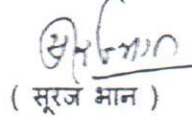 ( सूरज भान )